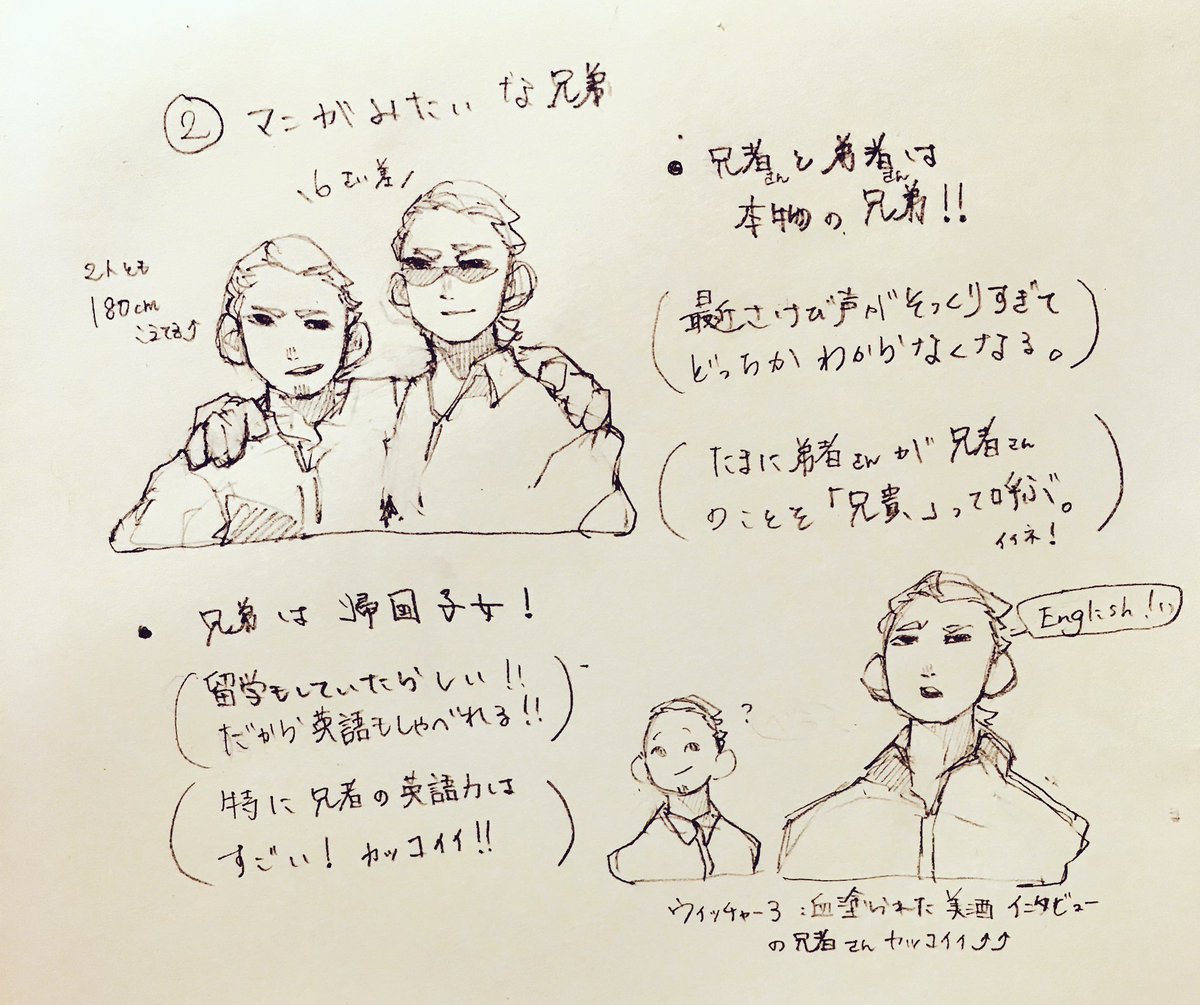 ② マンガみたいな兄弟
\6さい差/
2人とも
180cm
こえてる↑
• 兄者さんと弟者さんは
本物の兄弟!!
(最近さけび声がそっくりすぎて
どっちかわからなくなる。)
(たまに弟者さんが兄者さん
のことを「兄貴」って呼ぶ。
イイネ!)
• 兄弟は帰国子女!
(留学もしていたらしい!!
だから英語もしゃべれる!!)
(特に兄者の英語力は
すごい! カッコイイ!!)
English!!
?
ウィッチャー3:血塗られた美酒 インタビュー
の兄者さんカッコイイ↑↑